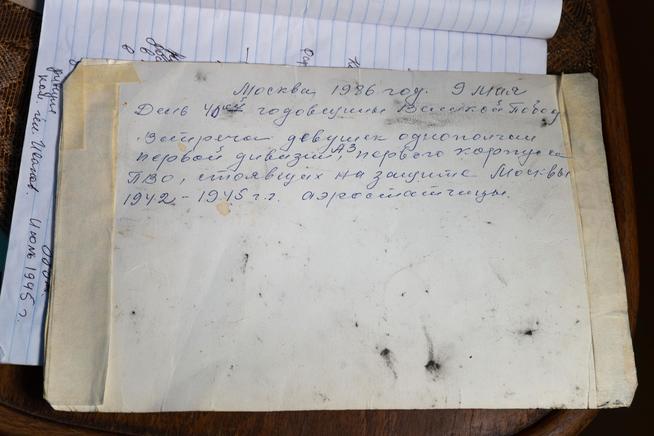 Москва 1986 год. 9 мая
День 40ой годовщины Великой Побед
Встреча девушек однополчан
первой дивизии АЗ, первого корпуса
ПВО, стоявших на защите Москвы
1942-1945 г.г. аэростатчицы.
ген. Иванов. Июль 1945 г.